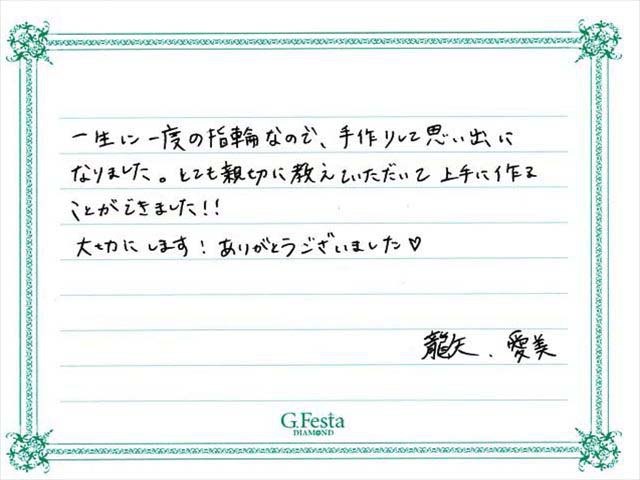 一生に一度の指輪なので、手作りして思い出に
なりました。とても親切に教えていただいて上手に作る
ことができました!!
大切にします!ありがとうございました♡
龍矢、愛美
G.Festa
DIAMOND